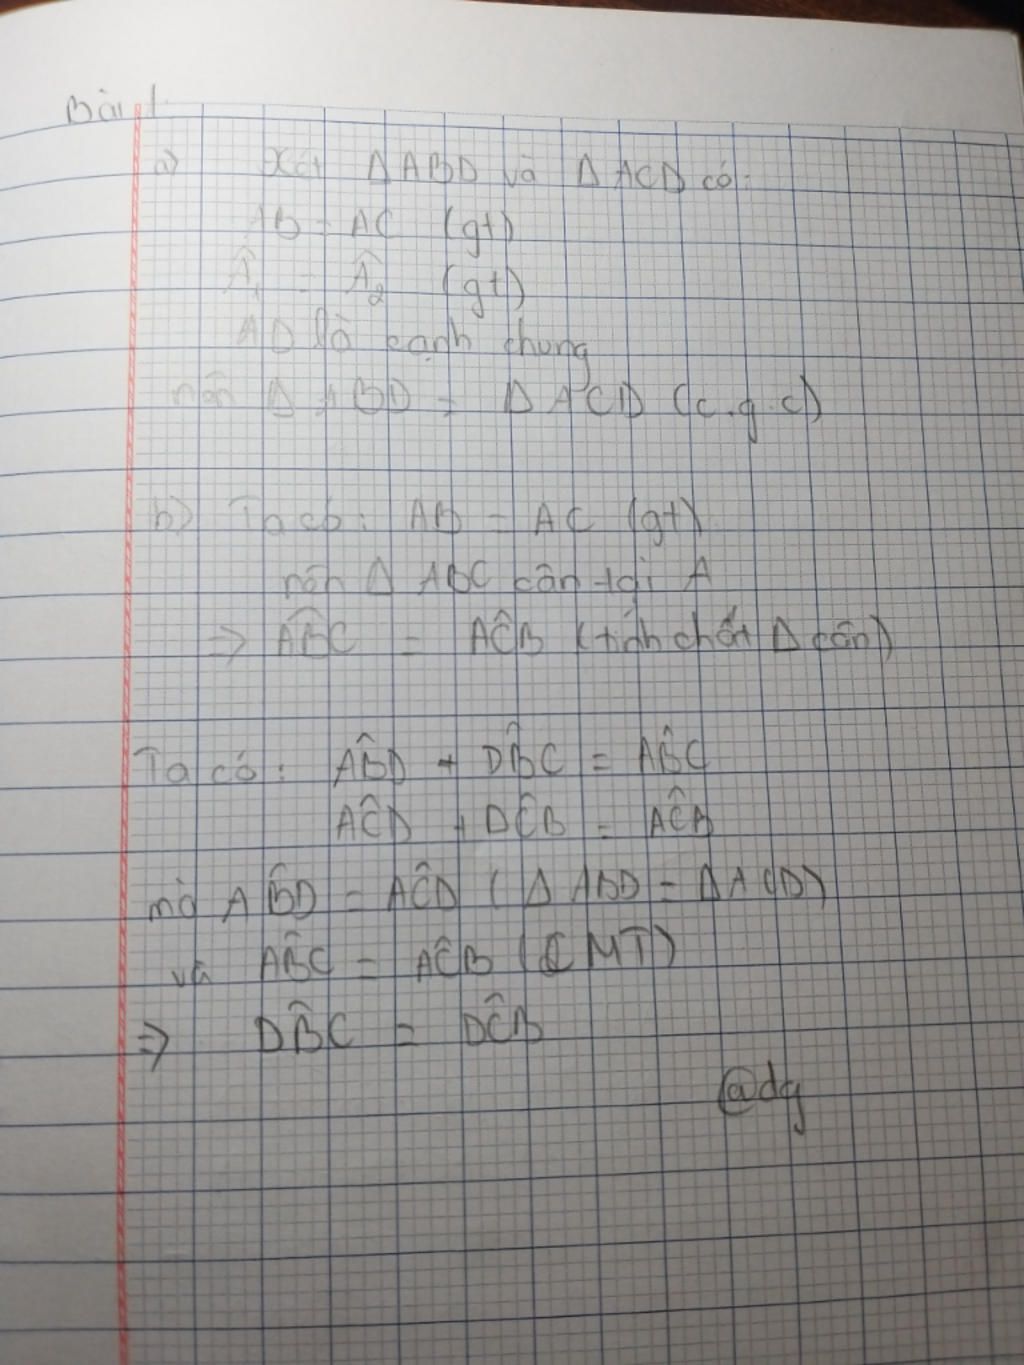 Bài 1
a) Xét Δ ABD và Δ ACD có:
AB = AC (gt)
Â₁ = Â₂ (gt)
AD là cạnh chung
nên Δ ABD = Δ ACD (c.g.c)
b) Ta có: AB = AC (gt)
nên Δ ABC cân tại A
=> AB̂C = AĈB (tính chất Δ cân)
Ta có: AB̂D + DB̂C = AB̂C
AĈD + DĈB = AĈB
mà AB̂D = AĈD (Δ ABD = Δ ACD)
và AB̂C = AĈB (CMT)
=> DB̂C = DĈB
@dg